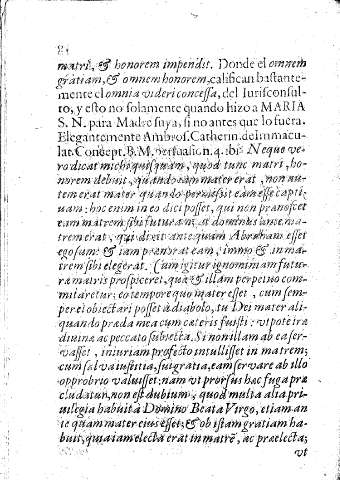 matri, & honorem impendit. Donde el omnem
gratiam, & omnem honorem, califican bastante-
mente el omnia videri concessa, del Iurisconsul-
to, y esto no solamente quando hizo a MARIA
S. N. para Madre suya, si no antes que lo fuera.
Elegantemente Ambros. Catherin. de immacu-
lat. Concept. B. M. n. 4. ibi: Neque ve-
ro dicat michi quisquam, quod tunc matri, ho-
norem debuit, quando eam mater erat, non au-
tem erat mater quando eam esse capti-
uam: hoc enim in eo dici posset, qui non pranoscet
eam matrem sibi futuram, at dominus ante ma-
trem erat, qui dixit antequam Abraham esset
ego sum: & iam erat eam, immo & in ma-
trem sibi elegerat. Cum igitur ignominiam futu-
ra matris prospiceret, qua & illam perpetuo com-
mitaretur: eo tempore quo mater esset, cum sem-
per ei obiectari posset à diabolo, tu Dei mater ali-
quando præda mea cum cæteris fuisti: vt pote ira
diuina ac peccato subiecta. Si non illam ab ea ser-
vasset, iniuriam profecto intulisset in matrem;
cum salva iustitia, sui gratia, eam servare ab illo
opprobrio valuisset: nam vt prorsus hac fuga præ
cludatur, non est dubium, quod multa alia pri-
uilegia habuit à Domino Beata Virgo, etiam an-
te quam mater eius esset; & ob istam gratiam ha-
buit, quia iam electa erat in matrẽ, ac præelecta;
vt